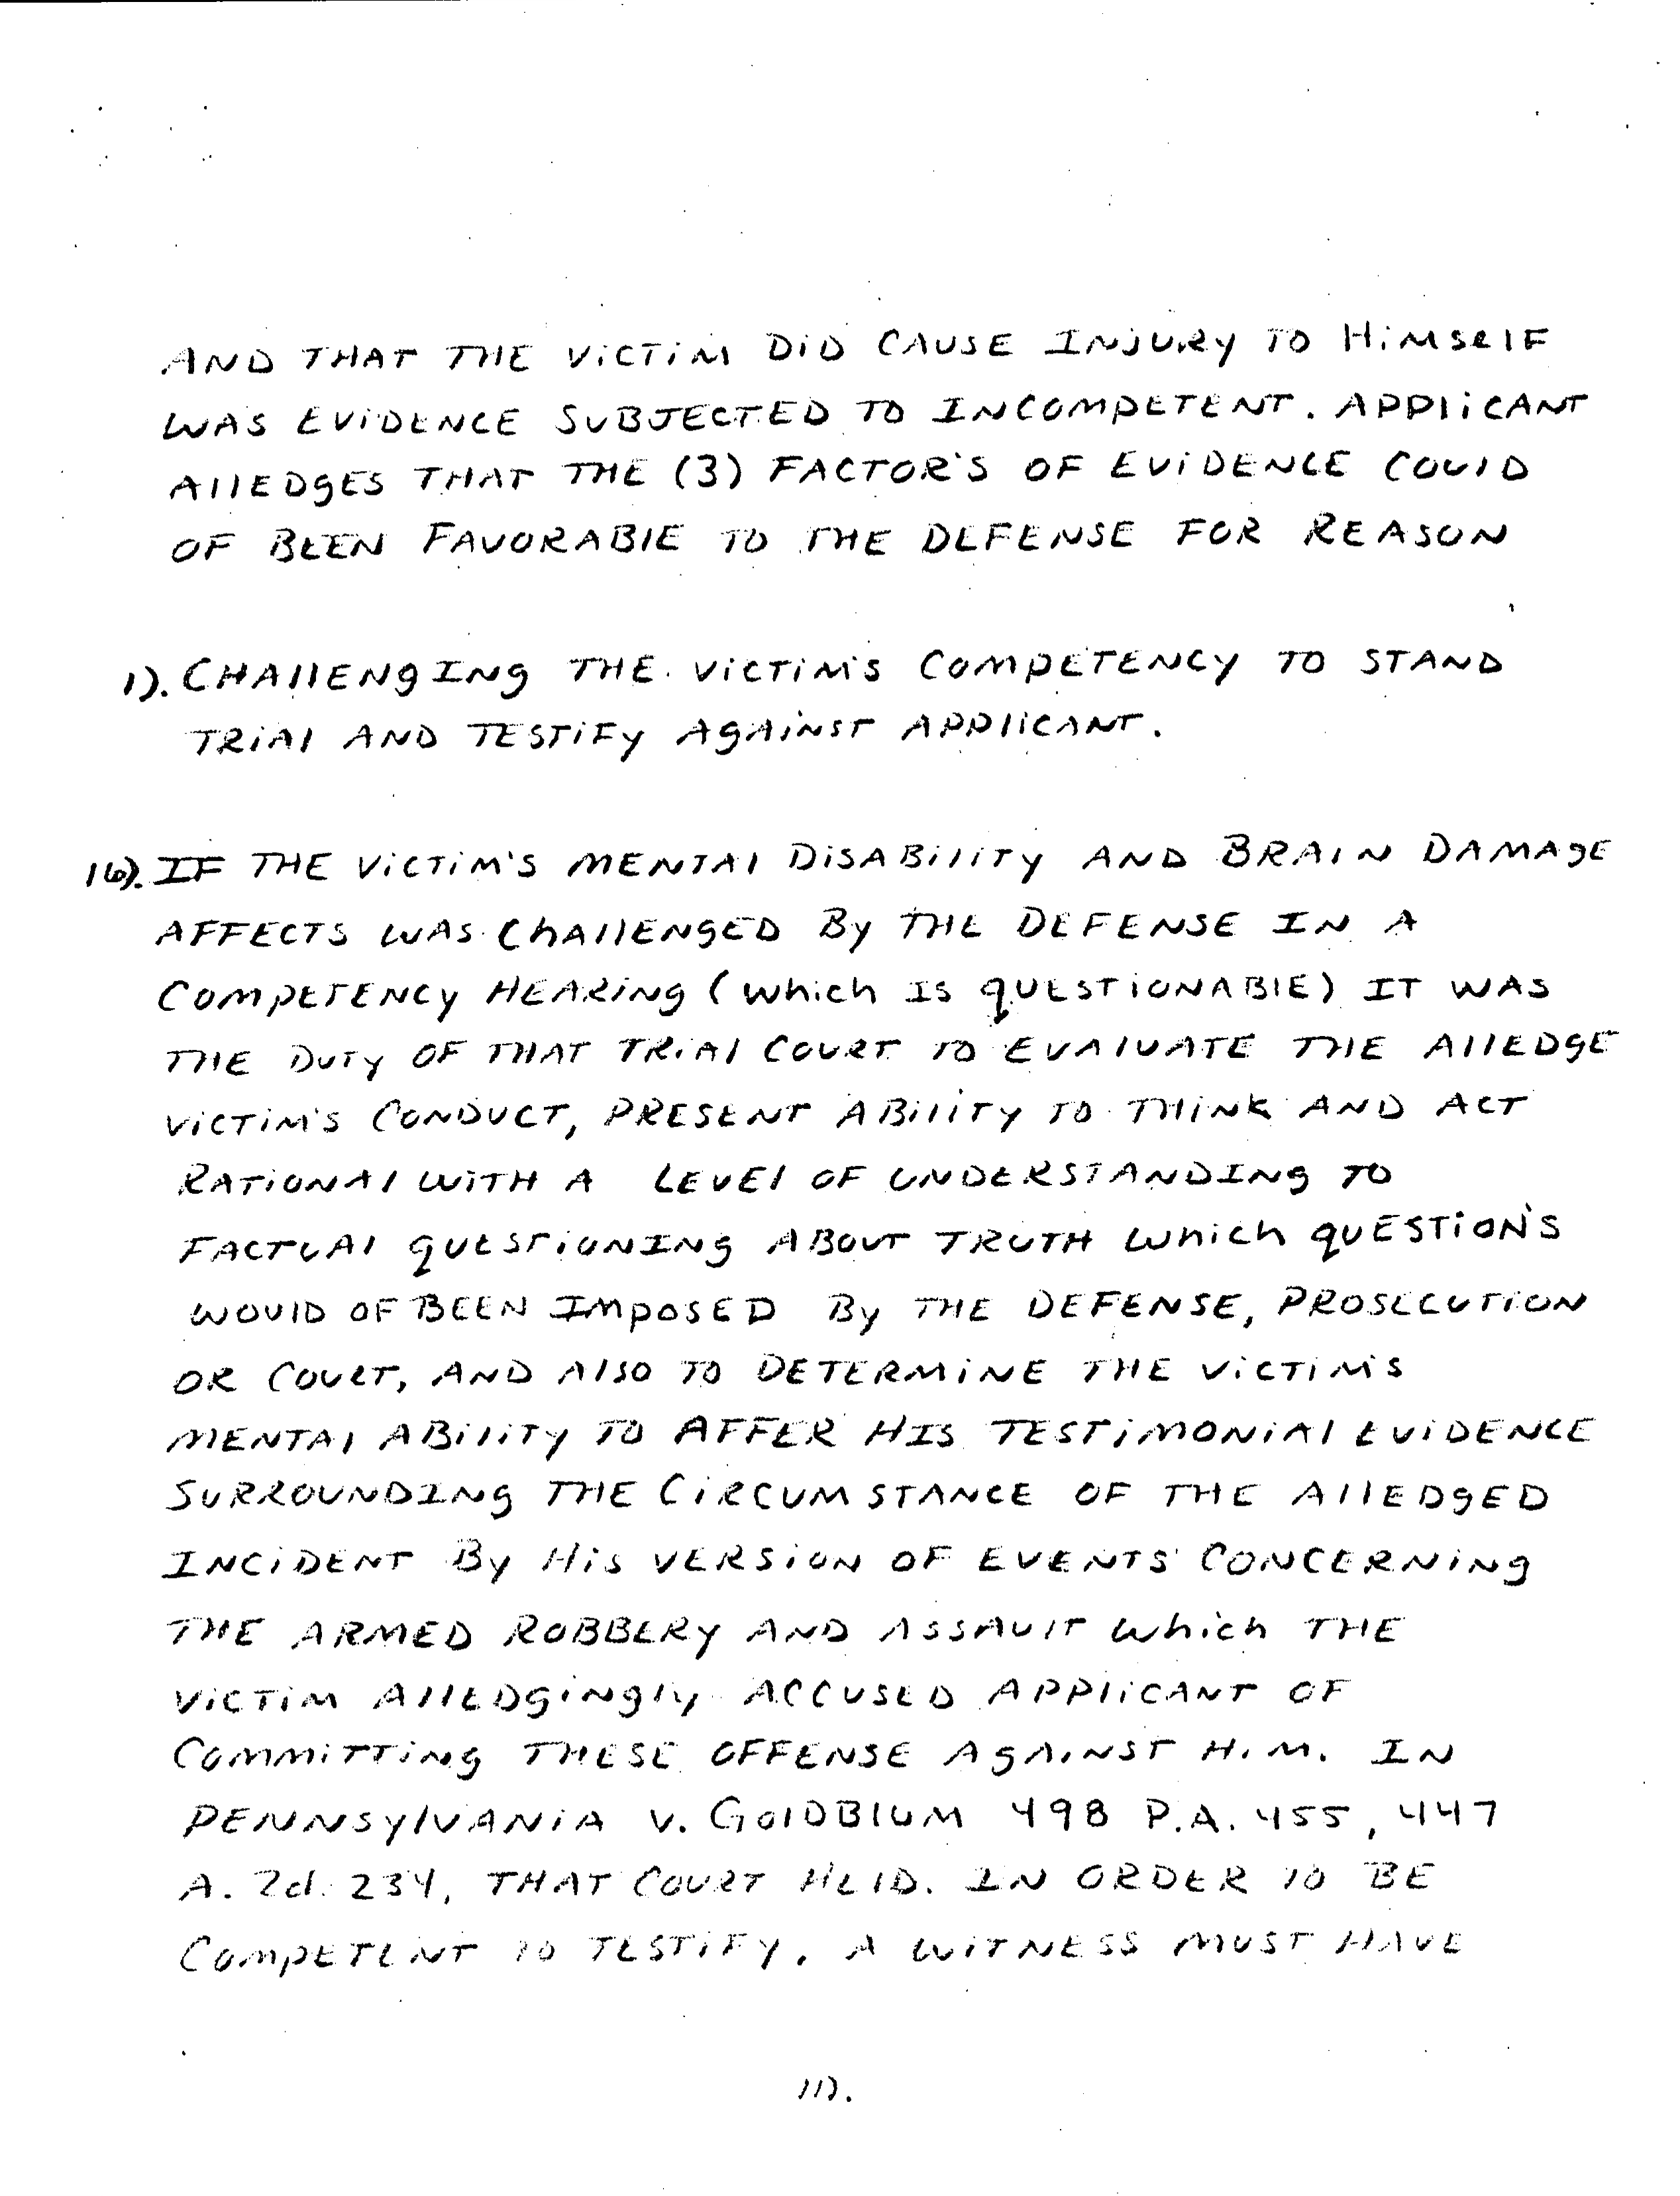 AND THAT THE VICTIM DID CAUSE INJURY TO HIMSElF
WAS EVIDENCE SUBJECTED TO INCOMPETENT. APPlICANT
AllEDGES THAT THE (3) FACTOR'S OF EVIDENCE COUlD
OF BEEN FAVORABlE TO THE DEFENSE FOR REASON
1). CHAllENGING THE VICTIM'S COMPETENCY TO STAND
TRIAl AND TESTIFY AGAINST APPlICANT.
16). IF THE VICTIM'S MENTAl DISABIlITY AND BRAIN DAMAGE
AFFECTS WAS ChAllENGED By THE DEFENSE IN A
COMPETENCY HEARING (which IS QUESTIONABlE) IT WAS
THE DUTY OF THAT TRIAl COURT TO EVAlUATE THE AllEDGE
VICTIM'S CONDUCT, PRESENT ABIlITY TO THINK AND ACT
RATIONAl WITH A LEVEl OF UNDERSTANDING TO
FACTUAl QUESTIONING ABOUT TRUTH which QUESTION'S
WOUlD OF BEEN IMPOSED By THE DEFENSE, PROSECUTION
OR COURT, AND AlSO TO DETERMINE THE VICTIM'S
MENTAl ABIlITY TO AFFER HIS TESTIMONIAl EVIDENCE
SURROUNDING THE CIRCUMSTANCE OF THE AllEDGED
INCIDENT By HIS VERSION OF EVENTS CONCERNING
THE ARMED ROBBERY AND ASSAUlT which THE
VICTIM AllEDGINGly ACCUSED APPlICANT OF
COMMITTING THESE OFFENSE AGAINST HIM. IN
PENNSYlVANIA V. GOlDBlUM 498 P.A. 455, 447
A. 2d. 234, THAT COURT HElD. IN ORDER TO BE
COMPETENT TO TESTIFY. A WITNESS MUST HAVE
11).